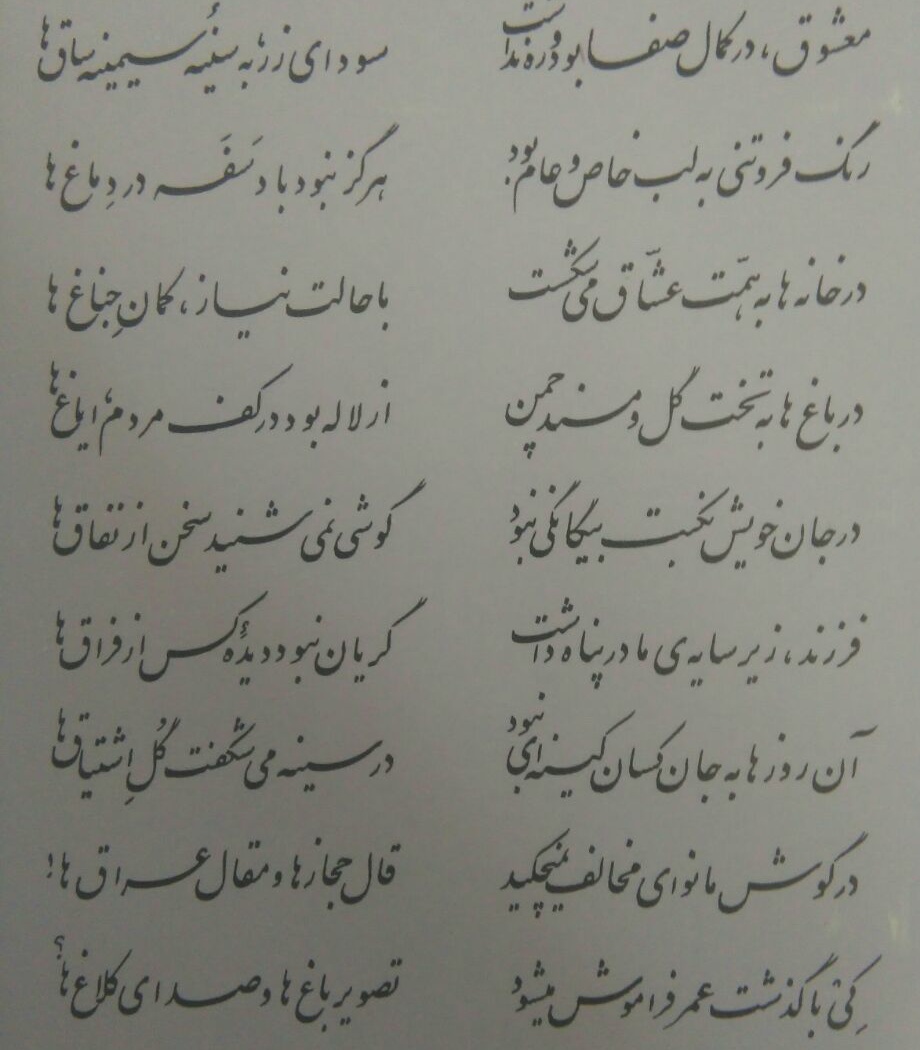 معشوق، در کمال صفا بود و ره نداشت
سودای زرزها به سینهٔ سیمینه ساق‌ها
رنگ فروتنی به لب خاص و عام بود
هرگز نبود باد سَفَه در دِماغ‌ها
در خانه‌ها به همّت عشّاق می‌شکست
با حالت نیاز، کمانِ جِناغ‌ها
در باغ‌ها به تخت گل و مسند چمن
از لاله بود در کف مردم، ایاغ‌ها
در جان خویش نکبت بیگانگی نبود
گوشی نمی‌شنید سخن از نفاق‌ها
فرزند، زیر سایه‌ی مادر پناه داشت
گریان نبود دیدهٔ کس از فراق‌ها
آن روزها به جان کسان کینه‌ای نبود
در سینه می‌شکفت گُلِ اشتیاق‌ها
در گوش ما نوای مخالف نمی‌چکید
قال حجازها و مقال عراق‌ها!
کِیْ با گذشت عمر فراموش می‌شود
تصویر باغ‌ها و صدای کلاغ‌ها؟